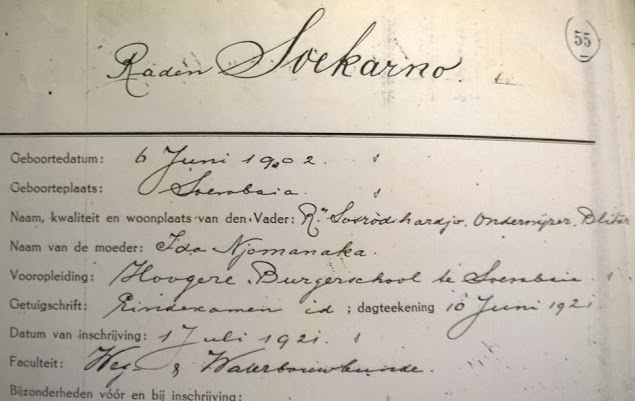 55
Raden Soekarno.
Geboortedatum: 6 Juni 1902.
Geboorteplaats: Soerabaia.
Naam, kwaliteit en woonplaats van den Vader: Rn Sosrodihardjo, Onderwijzer, Blitar
Naam van de moeder: Ida Njomanaka.
Vooropleiding: Hoogere Burgerschool te Soerabaia
Getuigschrift: Eindexamen id ; dagteekening 10 Juni 1921
Datum van inschrijving: 1 Juli 1921.
Faculteit: Weg & Waterbouwkunde.
Bijzonderheden vóór en bij inschrijving: